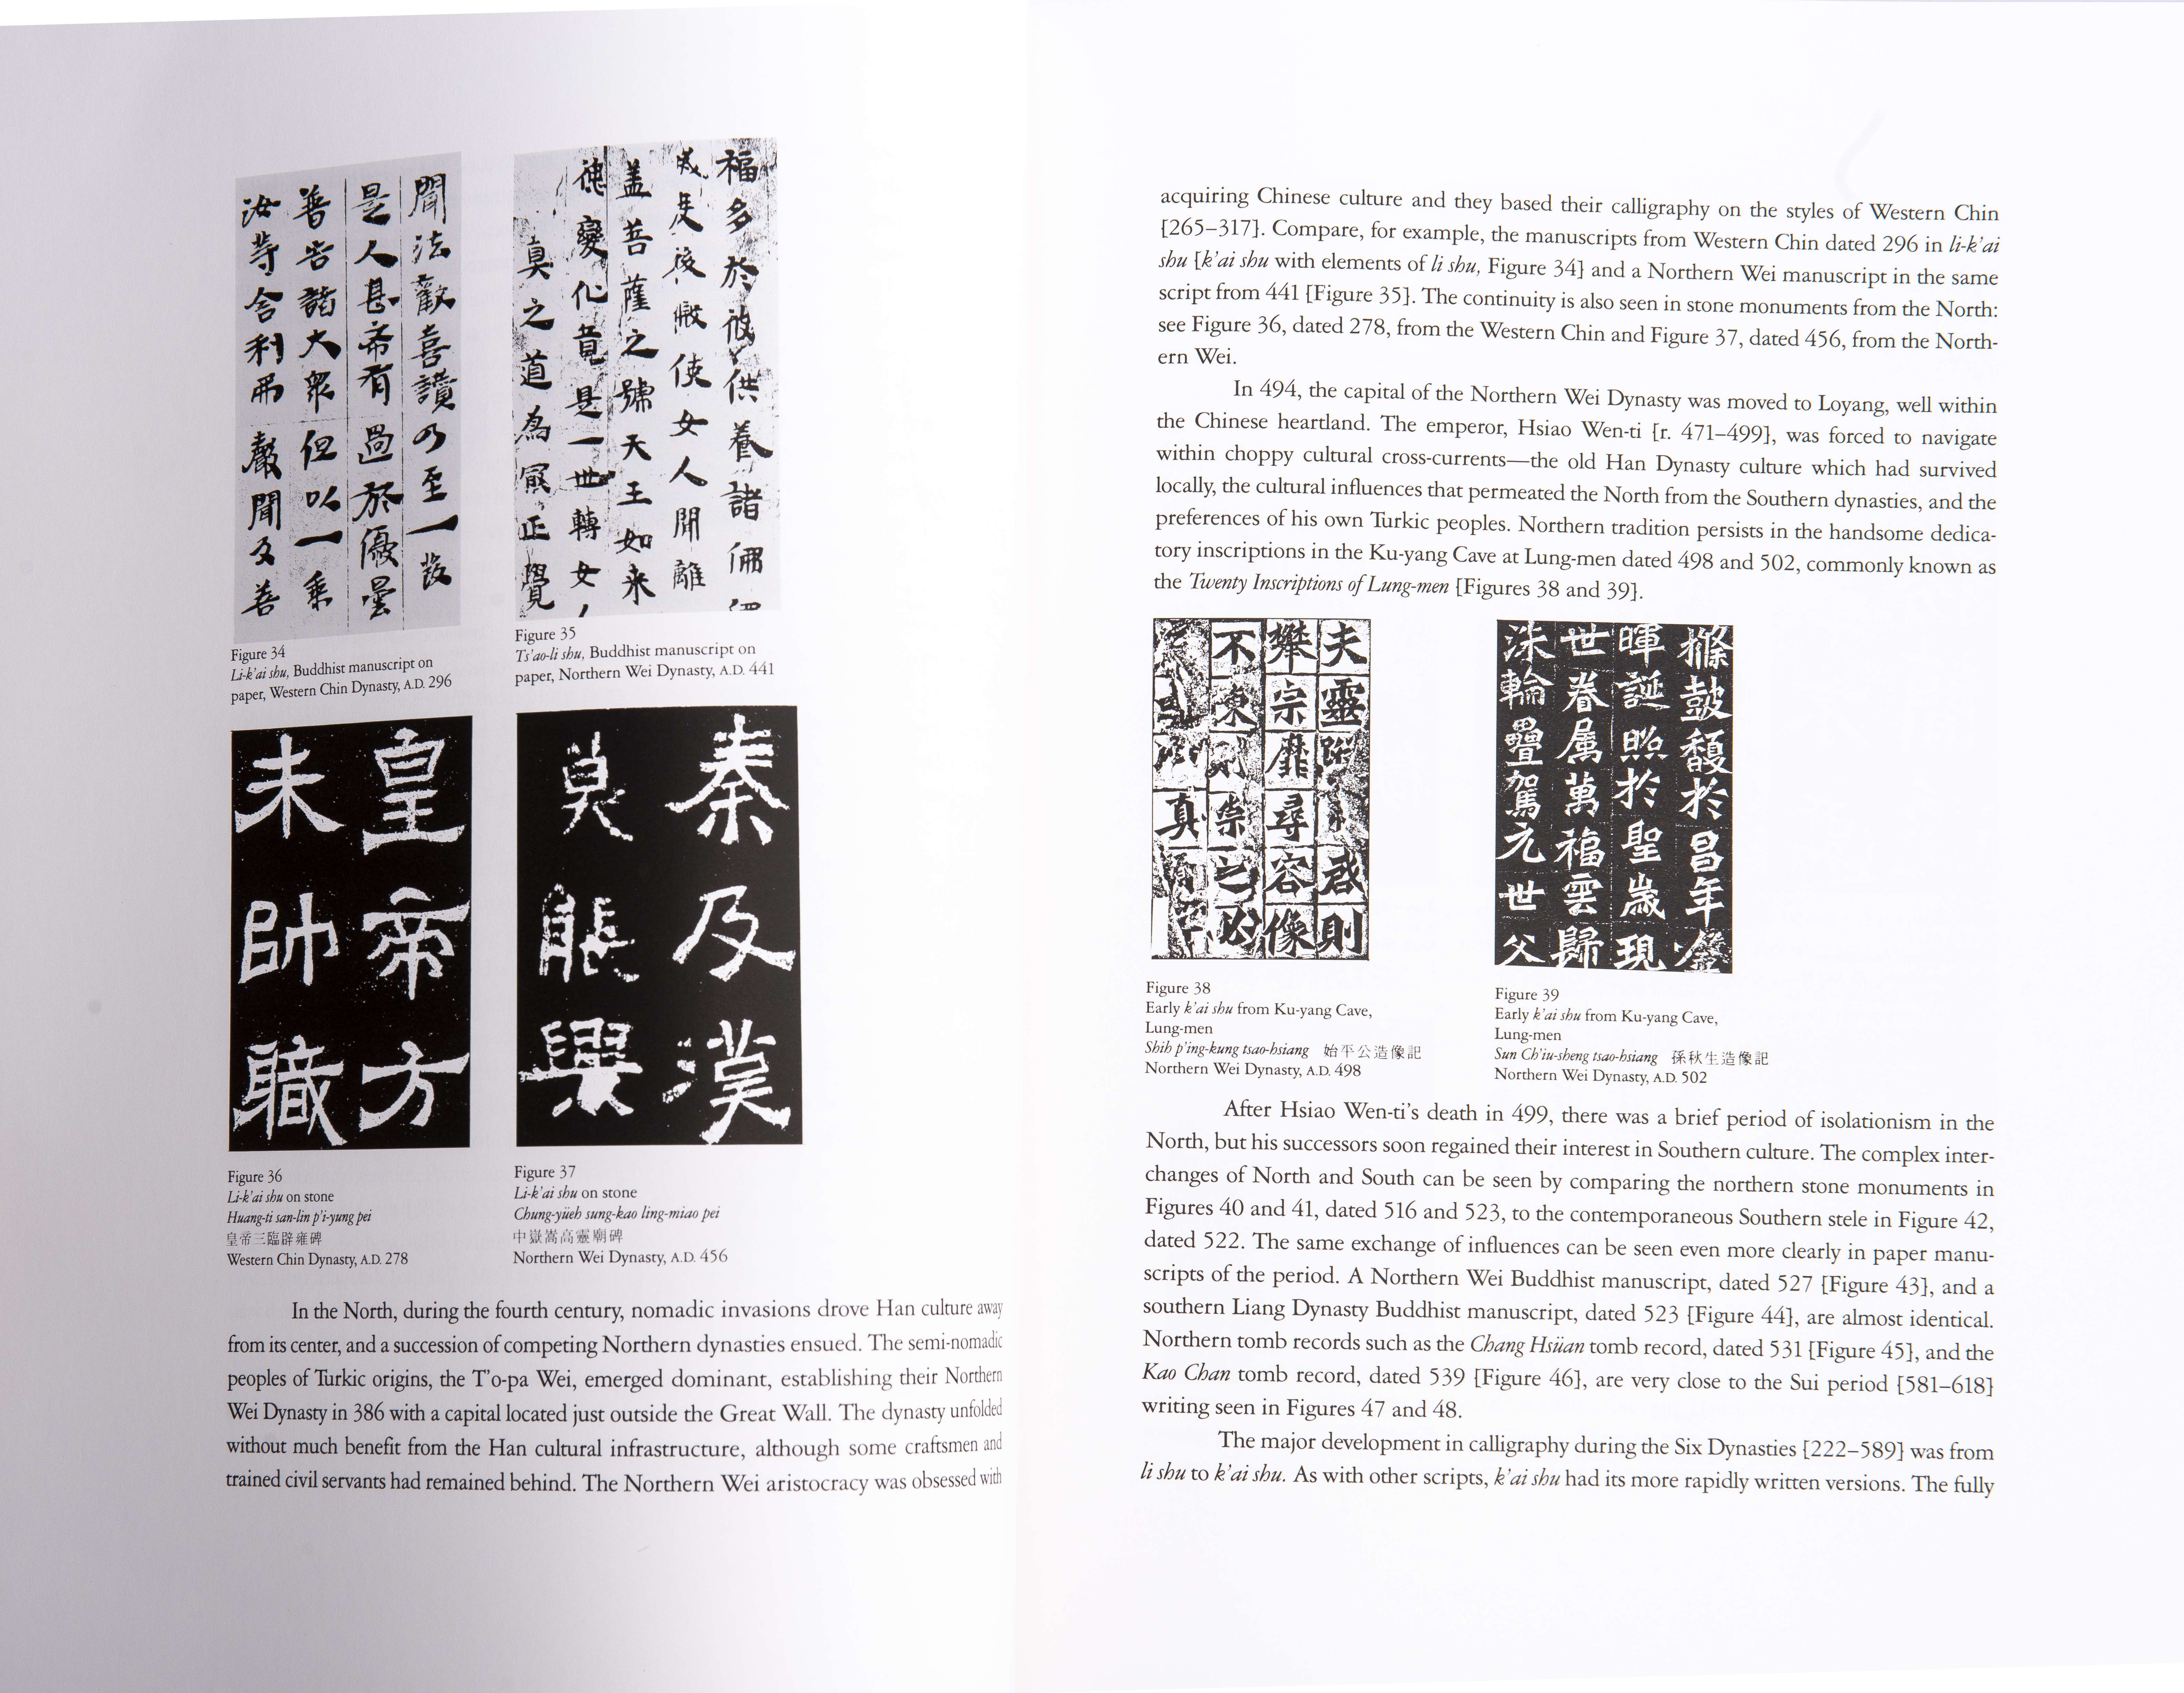 聞法歡喜讃乃至一發
是人甚希有過於優曇
普告諸大衆但以一乘
汝等舍利弗聲聞及善
Figure 34
Li-k'ai shu, Buddhist manuscript on
paper, Western Chin Dynasty, A.D. 296
福多於彼供養諸佛
度後使女人聞離
蓋菩薩之號天王如来
德變化竟是一世轉女
真之道為冣正覺
Figure 35
Ts'ao-li shu, Buddhist manuscript on
paper, Northern Wei Dynasty, A.D. 441
皇帝方
未帥職
Figure 36
Li-k'ai shu on stone
Huang-ti san-lin p'i-yung pei
皇帝三臨辟雍碑
Western Chin Dynasty, A.D. 278
秦及漢
莫
Figure 37
Li-k'ai shu on stone
Chung-yüeh sung-kao ling-miao pei
中嶽嵩高靈廟碑
Northern Wei Dynasty, A.D. 456
In the North, during the fourth century, nomadic invasions drove Han culture away
from its center, and a succession of competing Northern dynasties ensued. The semi-nomadic
peoples of Turkic origins, the T'o-pa Wei, emerged dominant, establishing their Northern
Wei Dynasty in 386 with a capital located just outside the Great Wall. The dynasty unfolded
without much benefit from the Han cultural infrastructure, although some craftsmen and
trained civil servants had remained behind. The Northern Wei aristocracy was obsessed with
acquiring Chinese culture and they based their calligraphy on the styles of Western Chin
[265–317]. Compare, for example, the manuscripts from Western Chin dated 296 in li-k'ai
shu [k'ai shu with elements of li shu, Figure 34] and a Northern Wei manuscript in the same
script from 441 [Figure 35]. The continuity is also seen in stone monuments from the North:
see Figure 36, dated 278, from the Western Chin and Figure 37, dated 456, from the North-
ern Wei.
In 494, the capital of the Northern Wei Dynasty was moved to Loyang, well within
the Chinese heartland. The emperor, Hsiao Wen-ti [r. 471–499], was forced to navigate
within choppy cultural cross-currents—the old Han Dynasty culture which had survived
locally, the cultural influences that permeated the North from the Southern dynasties, and the
preferences of his own Turkic peoples. Northern tradition persists in the handsome dedica-
tory inscriptions in the Ku-yang Cave at Lung-men dated 498 and 502, commonly known as
the Twenty Inscriptions of Lung-men [Figures 38 and 39].
夫靈跡啓則
攀宗靡尋容像
不陳則崇之必
真顔
Figure 38
Early k'ai shu from Ku-yang Cave,
Lung-men
Shih p'ing-kung tsao-hsiang 始平公造像記
Northern Wei Dynasty, A.D. 498
條鼓馥於昌年
暉誕照於聖歲現
世眷属萬福雲歸
洙輪疊駕元世父
Figure 39
Early k'ai shu from Ku-yang Cave,
Lung-men
Sun Ch'iu-sheng tsao-hsiang 孫秋生造像記
Northern Wei Dynasty, A.D. 502
After Hsiao Wen-ti's death in 499, there was a brief period of isolationism in the
North, but his successors soon regained their interest in Southern culture. The complex inter-
changes of North and South can be seen by comparing the northern stone monuments in
Figures 40 and 41, dated 516 and 523, to the contemporaneous Southern stele in Figure 42,
dated 522. The same exchange of influences can be seen even more clearly in paper manu-
scripts of the period. A Northern Wei Buddhist manuscript, dated 527 [Figure 43], and a
southern Liang Dynasty Buddhist manuscript, dated 523 [Figure 44], are almost identical.
Northern tomb records such as the Chang Hsüan tomb record, dated 531 [Figure 45], and the
Kao Chan tomb record, dated 539 [Figure 46], are very close to the Sui period [581–618]
writing seen in Figures 47 and 48.
The major development in calligraphy during the Six Dynasties [222–589] was from
li shu to k'ai shu. As with other scripts, k'ai shu had its more rapidly written versions. The fully